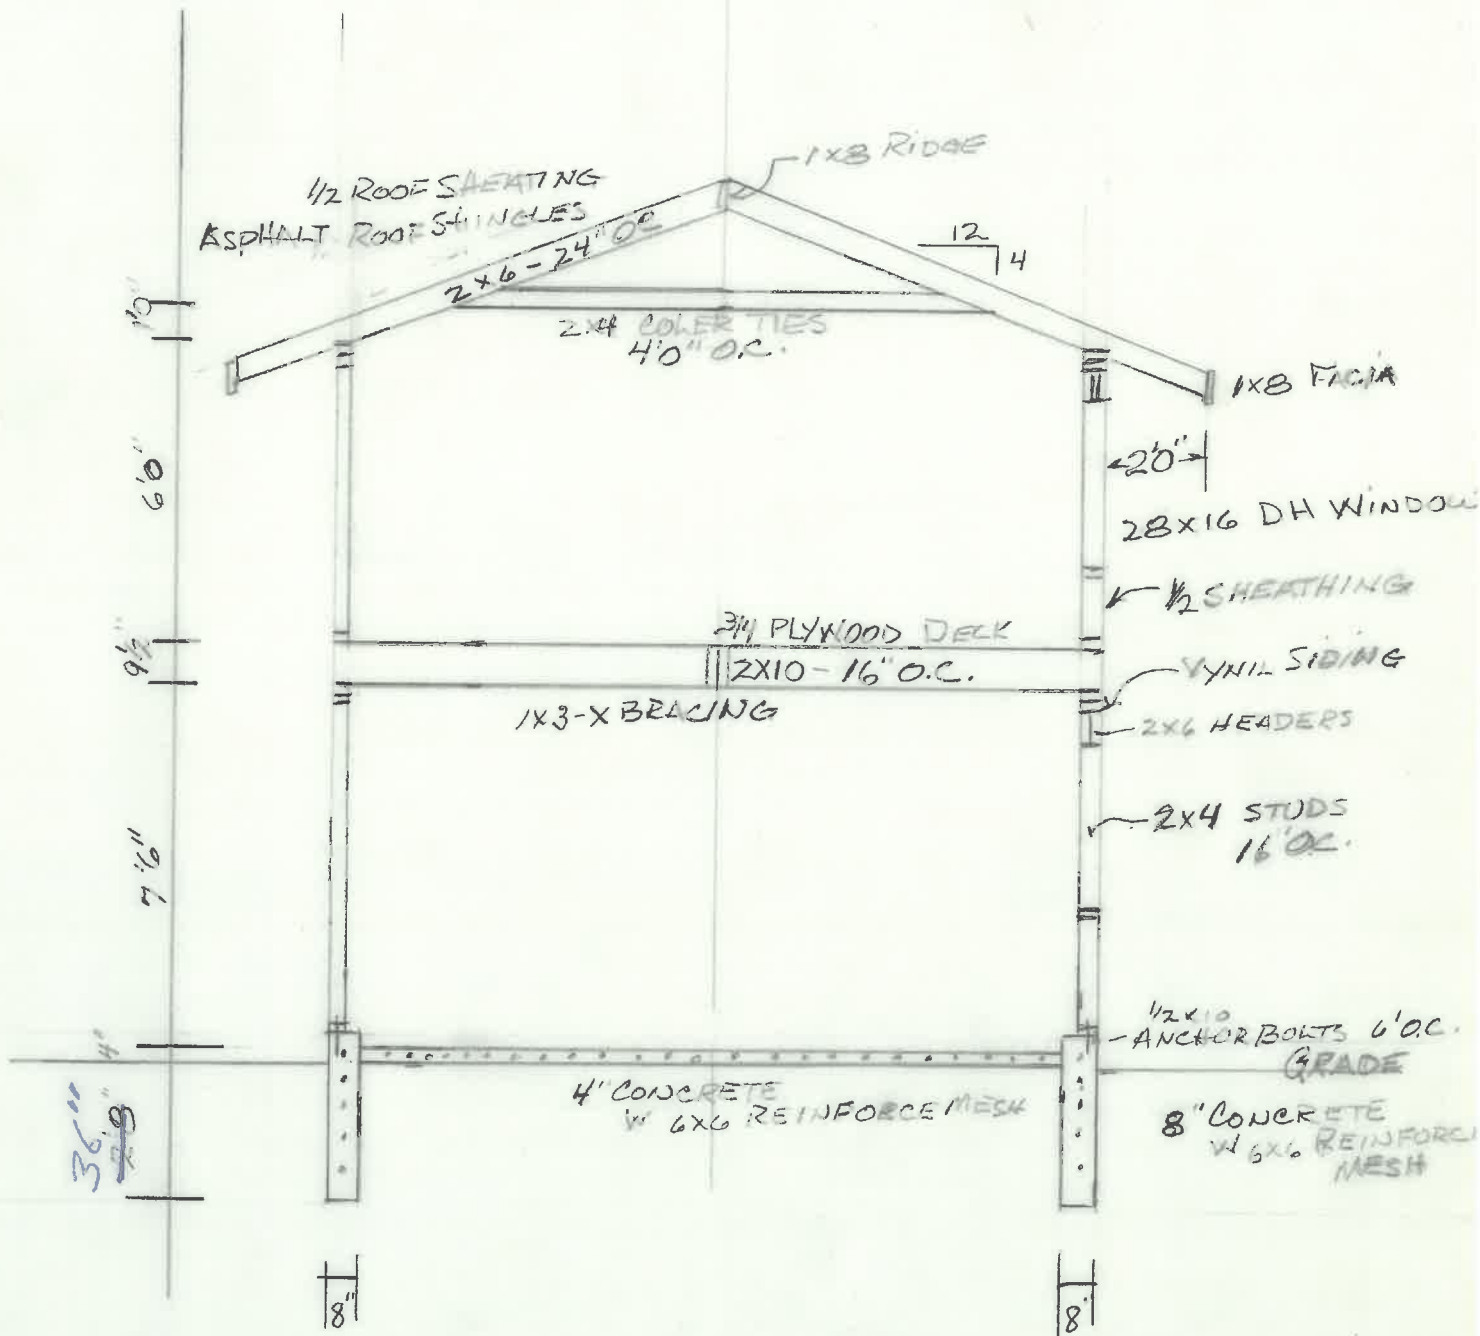 1X8 RIDGE
1/2 ROOF SHEATING
ASPHALT ROOF SHINGLES
2X6 - 24" OC
12
4
1'0"
2X4 COLER TIES
4'0" O.C.
1X8 FACIA
2'0"
6'0"
28X16 DH WINDOW
1/2 SHEATHING
3/4 PLYWOOD DECK
9 1/2"
2X10 - 16" O.C.
VYNIL SIDING
1X3-X BRACING
2X6 HEADERS
2X4 STUDS
16" O.C.
7'6"
1/2 X 10
ANCHOR BOLTS 6' O.C.
4"
GRADE
4' CONCRETE
W 6X6 REINFORCE MESH
8" CONCRETE
W 6X6 REINFORC
MESH
36"
2'8"
8"
8"